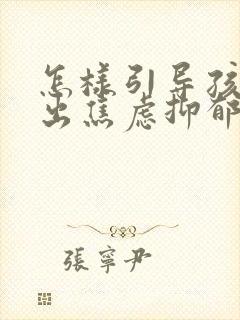 怎样引导孩
出焦虑抑郁
張寧尹